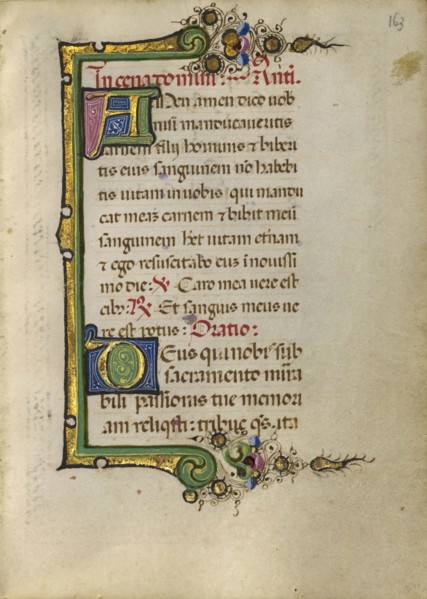 163
In cena domini: Anti.
AMen amen dico vob
nisi manducaveritis
carnem filij hominis & biberi
tis eius sanguinem nō habebi
tis vitam in vobis qui mandu
cat meaʒ carnem & bibit meū
sanguinem het vitam etnam
& ego resuscitabo euʒ ī novissi
mo die: ℣ Caro mea vere est
cibʒ: ℟ Et sanguis meus ve
re est potus: Oratio:
DEus qui nobis sub
sacramento mira
bili passionis tue memori
am reliqsti: tribue qs. ita